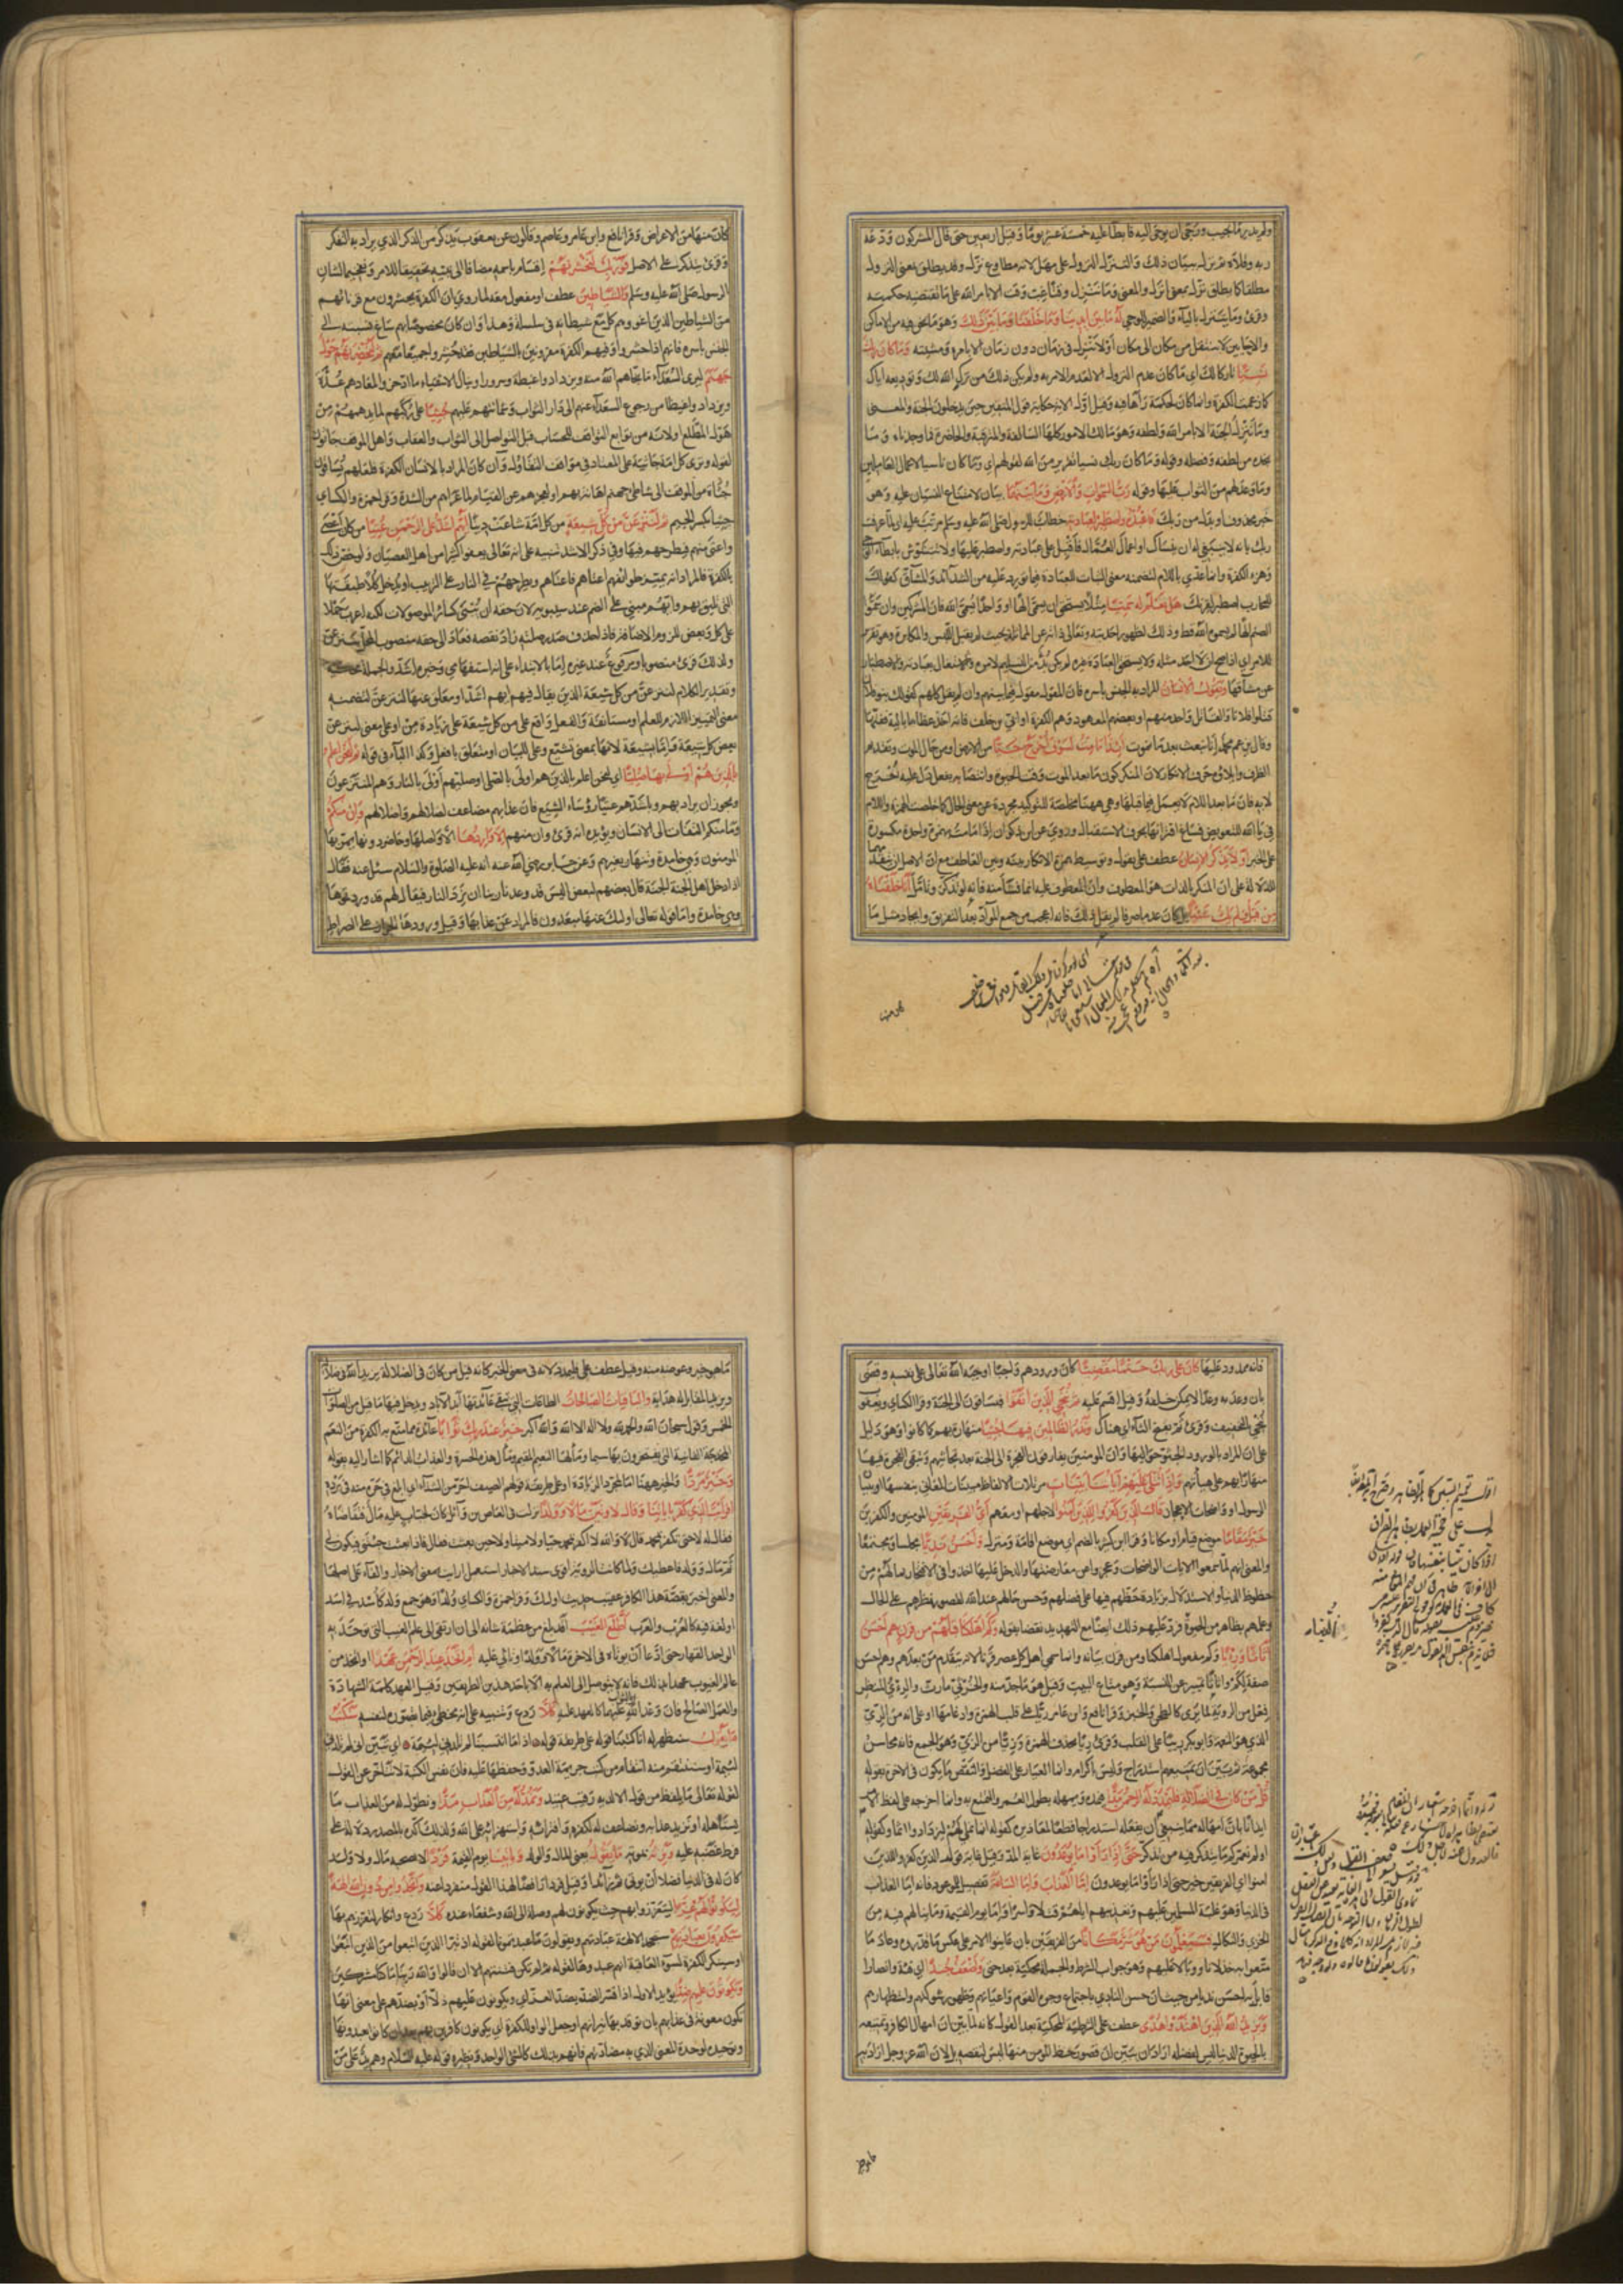 ولم يدر ما يجيب ورجى ان يوحى اليه فابطأ عليه خمسة عشر يوما وقيل اربعين حتى قال المشركون ودعه
ربه وقلاه ثم نزل ببيان ذلك والتنزل النزول على مهل لانه مطاوع نزل وقد يطلق بمعنى النزول
مطلقا كما يطلق نزل بمعنى انزل والمعنى وما نتنزل وقتا غب وقت الا بامر الله على ما تقتضيه حكمته
وقرئ وما يتنزل بالياء والضمير للوحي له ما بين ايدينا وما خلفنا وما بين ذلك وهو ما نحن فيه من الاماكن
والاحايين لا ننتقل من مكان الى مكان او لا نتنزل في زمان دون زمان الا بامره ومشيئته وما كان ربك
نسيا تاركا لك اي ما كان عدم النزول الا لعدم الامر به ولم يكن ذلك من ترك الله لك وتوديعه اياك
كما زعمت الكفرة وانما كان لحكمة رآها فيه وقيل اول الاية حكاية قول المتقين حين يدخلون الجنة والمعنى
وما نتنزل الجنة الا بامر الله ولطفه وهو مالك الامور كلها السالفة والمترقبة والحاضرة فما وجدناه وما
نجده من لطفه وفضله وقوله وما كان ربك نسيا تقرير من الله لقولهم اي وما كان ناسيا لاعمال العاملين
وما وعدلهم من الثواب عليها وقوله رب السموات والارض وما بينهما بيان لامتناع النسيان عليه وهو
خبر محذوف او بدل من ربك فاعبده واصطبر لعبادته خطاب للرسول صلى الله عليه وسلم مرتب عليه اي لما عرفت
ربك بانه لا ينبغي له ان ينساك او اعمال العمال فاقبل على عبادته واصطبر عليها ولا تتشوش بابطاء الوحي
وهزء الكفرة وانما عدي باللام لتضمنه معنى الثبات للعبادة فيما يورد عليه من الشدائد والمشاق كقولك
للمحارب اصطبر لقرنك هل تعلم له سميا مثلا يستحق ان يسمى الها او واحدا يسمى الله فان المشركين وان سموا
الصنم الها لم يسموه الله قط وذلك لظهور احديته وتعالى ذاته عن المماثلة بحيث لم يقبل اللبس والمكابرة وهو تقرير
للامر اي اذا صح ان لا احد مثله ولا يستحق العبادة غيره لم يكن بد من التسليم لامره والاشتغال بعبادته والاصطبار
على مشاقها ويقول الانسان المراد به الجنس باسره فان المقول مقول فيما بينهم وان لم يقل كلهم كقولك بنو فلان
قتلوا فلانا والقاتل واحد منهم او بعضهم المعهود وهم الكفرة او ابي بن خلف فانه اخذ عظاما بالية ففتها
وقال يزعم محمد انا نبعث بعد ما نموت ائذا ما مت لسوف اخرج حيا من الارض او من حال الموت وتقديم
الظرف وايلاؤه حرف الانكار لان المنكر كون ما بعد الموت وقت الحيوة وانتصابه بفعل دل عليه اخرج
لا به فان ما بعد اللام لا يعمل فيما قبلها وهي ههنا مخلصة للتوكيد مجردة عن معنى الحال كما خلصت الهمزة واللام
في يا الله للتعويض فساغ اقترانها بحرف الاستقبال وروي عن ابن ذكوان اذا ما مت بهمزة واحدة مكسورة
على الخبر اولا يذكر الانسان عطف على يقول وتوسيط همزة الانكار بينه وبين العاطف مع ان الاصل ان تتقدمهما
للدلالة على ان المنكر بالذات هو المعطوف وان المعطوف عليه انما نشأ منه فانه لو تذكر وتأمل انا خلقناه
من قبل ولم يك شيئا بل كان عدما صرفا لم يقل ذلك فانه اعجب من جمع المواد بعد التفريق وايجاد مثل ما
كان منها من الاعراض وقرأ نافع وابن عامر وعاصم وقالون عن يعقوب يذكر من الذكر الذي يراد به التفكر
وقرئ يتذكر على الاصل فوربك لنحشرنهم اقسام باسمه مضافا الى نبيه تحقيقا للامر وتفخيما لشان
الرسول صلى الله عليه وسلم والشياطين عطف او مفعول معه لما روي ان الكفرة يحشرون مع قرنائهم
من الشياطين الذين اغووهم كل مع شيطانه في سلسلة وهذا وان كان مخصوصا بهم ساغ نسبته الى
الجنس باسره فانهم اذا حشروا وفيهم الكفرة مقرونين بالشياطين فقد حشروا جميعا معهم ثم لنحضرنهم حول
جهنم ليرى السعداء ما نجاهم الله منه ويزدادوا غبطة وسرورا وينال الاشقياء ما ادخروا لمعادهم عدة
ويزدادوا غيظا من رجوع السعداء عنهم الى دار الثواب وشماتتهم عليهم جثيا على ركبهم لما يدهمهم من
هول المطلع او لانه من توابع التواقف للحساب قبل التواصل الى الثواب والعقاب واهل الموقف جاثون
لقوله وترى كل امة جاثية على المعتاد في مواقف التقاول وان كان المراد بالانسان الكفرة فلعلهم يساقون
جثاة من الموقف الى شاطئ جهنم اهانة بهم او لعجزهم عن القيام لما عراهم من الشدة وقرأ حمزة والكسائي
جثيا بكسر الجيم ثم لننزعن من كل شيعة من كل امة شاعت دينا ايهم اشد على الرحمن عتيا من كان اعصى
واعتى منهم فيطرحهم فيها وفي ذكر الاشد تنبيه على انه تعالى يعفو كثيرا من اهل العصيان ولو خص ذلك
بالكفرة فالمراد انه يميز طوائفهم اعتاهم فاعتاهم ويطرحهم في النار على الترتيب او يدخل كلا طبقتها
التي تليق بهم وايهم مبني على الضم عند سيبويه لان حقه ان يبنى كسائر الموصولات لكنه اعرب حملا
على كل وبعض للزوم الاضافة فاذا حذف صدر صلته زاد نقصه فعاد الى حقه منصوب المحل بننزعن
ولذلك قرئ منصوبا ومرفوع عند غيره اما بالابتداء على انه استفهامي وخبره اشد والجملة محكية
وتقدير الكلام لننزعن من كل شيعة الذين يقال فيهم ايهم اشد او معلق عنها لننزعن لتضمنه
معنى التمييز اللازم للعلم او مستانفة والفعل واقع على من كل شيعة على زيادة من او على معنى لننزعن
بعض كل شيعة واما بشيعة لانها بمعنى تشيع وعلى للبيان او متعلق بافعل وكذا الباء في قوله ثم لنحن اعلم
بالذين هم اولى بها صليا اي لنحن اعلم بالذين هم اولى بالصلي او صليهم اولى بالنار وهم المنتزعون
ويجوز ان يراد بهم وباشدهم عتيا رؤساء الشيع فان عذابهم مضاعف لضلالهم واضلالهم وان منكم
وما منكم التفات الى الانسان ويؤيده انه قرئ وان منهم الا واردها الا واصلها وحاضر دونها يمر بها
المومنون وهي خامدة وتنهار بغيرهم وعن جابر رضي الله عنه انه عليه الصلوة والسلام سئل عنه فقال
اذا دخل اهل الجنة الجنة قال بعضهم لبعض اليس قد وعدنا ربنا ان نرد النار فيقال لهم قد وردتموها
وهي خامدة واما قوله تعالى اولئك عنها مبعدون فالمراد عن عذابها وقيل ورودها الجواز على الصراط
فانه ممدود عليها كان على ربك حتما مقضيا كان ورودهم واجبا اوجبه الله تعالى على نفسه وقضى
بان وعد به وعدا لا يمكن خلفه وقيل اقسم عليه ثم ننجي الذين اتقوا فيساقون الى الجنة وقرأ الكسائي ويعقوب
ننجي بالتخفيف وقرئ ثم بفتح الثاء اي هناك ونذر الظالمين فيها جثيا منهارة بهم كما كانوا وهو دليل
على ان المراد بالورود الجثو حواليها وان المومنين يفارقون الفجرة الى الجنة بعد تجاثيهم وتبقى الفجرة فيها
منهارا بهم على هيأتهم واذا تتلى عليهم اياتنا بينات مرتلات الالفاظ مبينات المعاني بنفسها او ببيان
الرسول او واضحات الاعجاز قال الذين كفروا للذين آمنوا لاجلهم او معهم اي الفريقين المومنين والكافرين
خير مقاما موضع قيام او مكانا وقرأ ابن كثير بالضم اي موضع اقامة ومنزل واحسن نديا مجلسا ومجتمعا
والمعنى انهم لما سمعوا الايات الواضحات وعجزوا عن معارضتها والدخل عليها اخذوا في الافتخار بما لهم من
حظوظ الدنيا والاستدلال بزيادة حظهم فيها على فضلهم وحسن حالهم عند الله لقصور نظرهم على الحال
وعلمهم بظاهر من الحيوة فرد عليهم ذلك ايضا مع التهديد نقضا بقوله وكم اهلكنا قبلهم من قرن هم احسن
اثاثا ورئيا وكم مفعول اهلكنا ومن قرن بيانه وانما سمي اهل كل عصر قرنا لانه يتقدم من بعدهم وهم احسن
صفة لكم واثاثا تمييز عن النسبة وهو متاع البيت وقيل هو ما جد منه والخرثي ما رث والرئي المنظر
فعل من الروية لما يرى كالطحن والخبز وقرأ نافع وابن عامر ريا على قلب الهمزة وادغامها او على انه من الري
الذي هو النعمة وابو بكر ريئا على القلب وقرئ ريا بحذف الهمزة وزيا من الزي وهو الجمع فانه محاسن
مجموعة ثم بين ان تمتيعهم استدراج وليس باكرام وانما العيار على الفضل والنقص ما يكون في الاخرة بقوله
قل من كان في الضلالة فليمدد له الرحمن مدا فيمده ويمهله بطول العمر والتمتع به وانما اخرجه على لفظ الامر
ايذانا بان امهاله مما ينبغي ان يفعله استدراجا وقطعا لمعاذيره كقوله انما نملي لهم ليزدادوا اثما وكقوله
اولم نعمركم ما يتذكر فيه من تذكر حتى اذا رأوا ما يوعدون غاية المد وقيل غاية قول الذين كفروا للذين
امنوا اي الفريقين خير حتى اذا رأوا ما يوعدون اما العذاب واما الساعة تفصيل للموعود فانه اما العذاب
في الدنيا وهو غلبة المسلمين عليهم وتعذيبهم اياهم قتلا واسرا واما يوم القيمة وما ينالهم فيه من
الخزي والنكال فسيعلمون من هو شر مكانا من الفريقين بان عاينوا الامر على عكس ما قدروه وعاد ما
متعوا به خذلانا ووبالا عليهم وهو جواب الشرط والجملة محكية بعد حتى واضعف جندا اي فئة وانصارا
قابل به احسن نديا من حيث ان حسن النادي باجتماع وجوه القوم واعيانهم وظهور شوكتهم واستظهارهم
ويزيد الله الذين اهتدوا هدى عطف على الشرطية المحكية بعد القول كانه لما بين ان امهال الكافر وتمتيعه
بالحيوة الدنيا ليس لفضله اراد ان يبين ان قصور حظ المومن منها ليس لنقصه بل لان الله عز وجل اراد به
ما هو خير وعوضه منه وقيل عطف على فليمدد لانه في معنى الخبر كانه قيل من كان في الضلالة يزيد الله في ضلاله
ويزيد المقابل له هداية والباقيات الصالحات الطاعات التي تبقى عائدتها ابد الاباد ويدخل فيها ما قيل من الصلوات
الخمس وقول سبحان الله والحمد لله ولا اله الا الله والله اكبر خير عند ربك ثوابا عائدة مما متع به الكفرة من النعم
المخدجة الفانية التي يفتخرون بها سيما ومآلها النعيم المقيم ومآل هذه الحسرة والعذاب الدائم كما اشار اليه بقوله
وخير مردا والخير ههنا اما لمجرد الزيادة او على طريقة قولهم الصيف احر من الشتاء اي ابلغ في حره منه في برده
افرأيت الذي كفر باياتنا وقال لاوتين مالا وولدا نزلت في العاص بن وائل كان لخباب عليه مال فتقاضاه
فقال له لا حتى تكفر بمحمد قال لا والله لا اكفر بمحمد حيا ولا ميتا ولا حين بعثت فقال فاذا بعثت جئتني فيكون لي
ثم مال وولد فاعطيك ولما كانت الروية اقوى سند الاخبار استعمل ارايت بمعنى الاخبار والفاء على اصلها
والمعنى اخبر بقصة هذا الكافر عقيب حديث اولئك وقرأ حمزة والكسائي ولدا وهو جمع ولد كأسد في اسد
او لغة فيه كالعرب والعرب اطلع الغيب أقد بلغ من عظمة شانه الى ان ارتقى الى علم الغيب الذي توحد به
الواحد القهار حتى ادعى ان يوتاه في الاخرة مالا وولدا وتألى عليه ام اتخذ عند الرحمن عهدا او اتخذ من
عالم الغيوب عهدا بذلك فانه لا يتوصل الى العلم به الا باحد هذين الطريقين وقيل العهد كلمة الشهادة
والعمل الصالح فان وعد الله بالثواب عليهما كالعهد عليه كلا ردع وتنبيه على انه مخطئ فيما تصوره لنفسه سنكتب
ما يقول سنظهر له انا كتبنا قوله على طريقة قوله اذا ما انتسبنا لم تلدني لئيمة اي تبين اني لم تلدني
لئيمة او سننتقم منه انتقام من كتب جريمة العدو وحفظها عليه فان نفس الكتبة لا تتاخر عن القول
لقوله تعالى ما يلفظ من قول الا لديه رقيب عتيد ونمد له من العذاب مدا ونطول له من العذاب ما
يستاهله او نزيد عذابه ونضاعف له لكفره وافترائه واستهزائه على الله ولذلك اكده بالمصدر دلالة على
فرط غضبه عليه ونرثه بموته ما يقول يعني المال والولد وياتينا يوم القيمة فردا لا يصحبه مال ولا ولد
كان له في الدنيا فضلا ان يوتى ثم زائدا وقيل فردا رافضا لهذا القول منفردا عنه واتخذوا من دون الله الهة
ليكونوا لهم عزا ليتعززوا بهم حيث يكونون لهم وصلة الى الله وشفعاء عنده كلا ردع وانكار لتعززهم بها
سيكفرون بعبادتهم ستجحد الالهة عبادتهم ويقولون ما عبدتمونا لقوله اذ تبرأ الذين اتبعوا من الذين اتبعوا
او سينكر الكفرة لسوء العاقبة انهم عبدوها لقوله ثم لم تكن فتنتهم الا ان قالوا والله ربنا ما كنا مشركين
ويكونون عليهم ضدا يؤيد الاول اذا فسر الضد بضد العز اي ويكونون عليهم ذلا او بضدهم على معنى انها
تكون معونة في عذابهم بان توقد بها نيرانهم او جعل الواو للكفرة اي يكونون كافرين بهم بعد ان كانوا يعبدونها
وتوحيده لوحدة المعنى الذي به مضادتهم فانهم بذلك كالشئ الواحد ونظيره قوله عليه السلام وهم يد على من